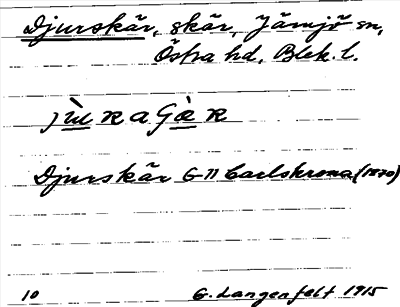 Djurskär, skär, Jämjö sn,
Östra hd, Blek. l.
Djurskär G II Carlskrona (1870)
10 G. Langenfelt 1915